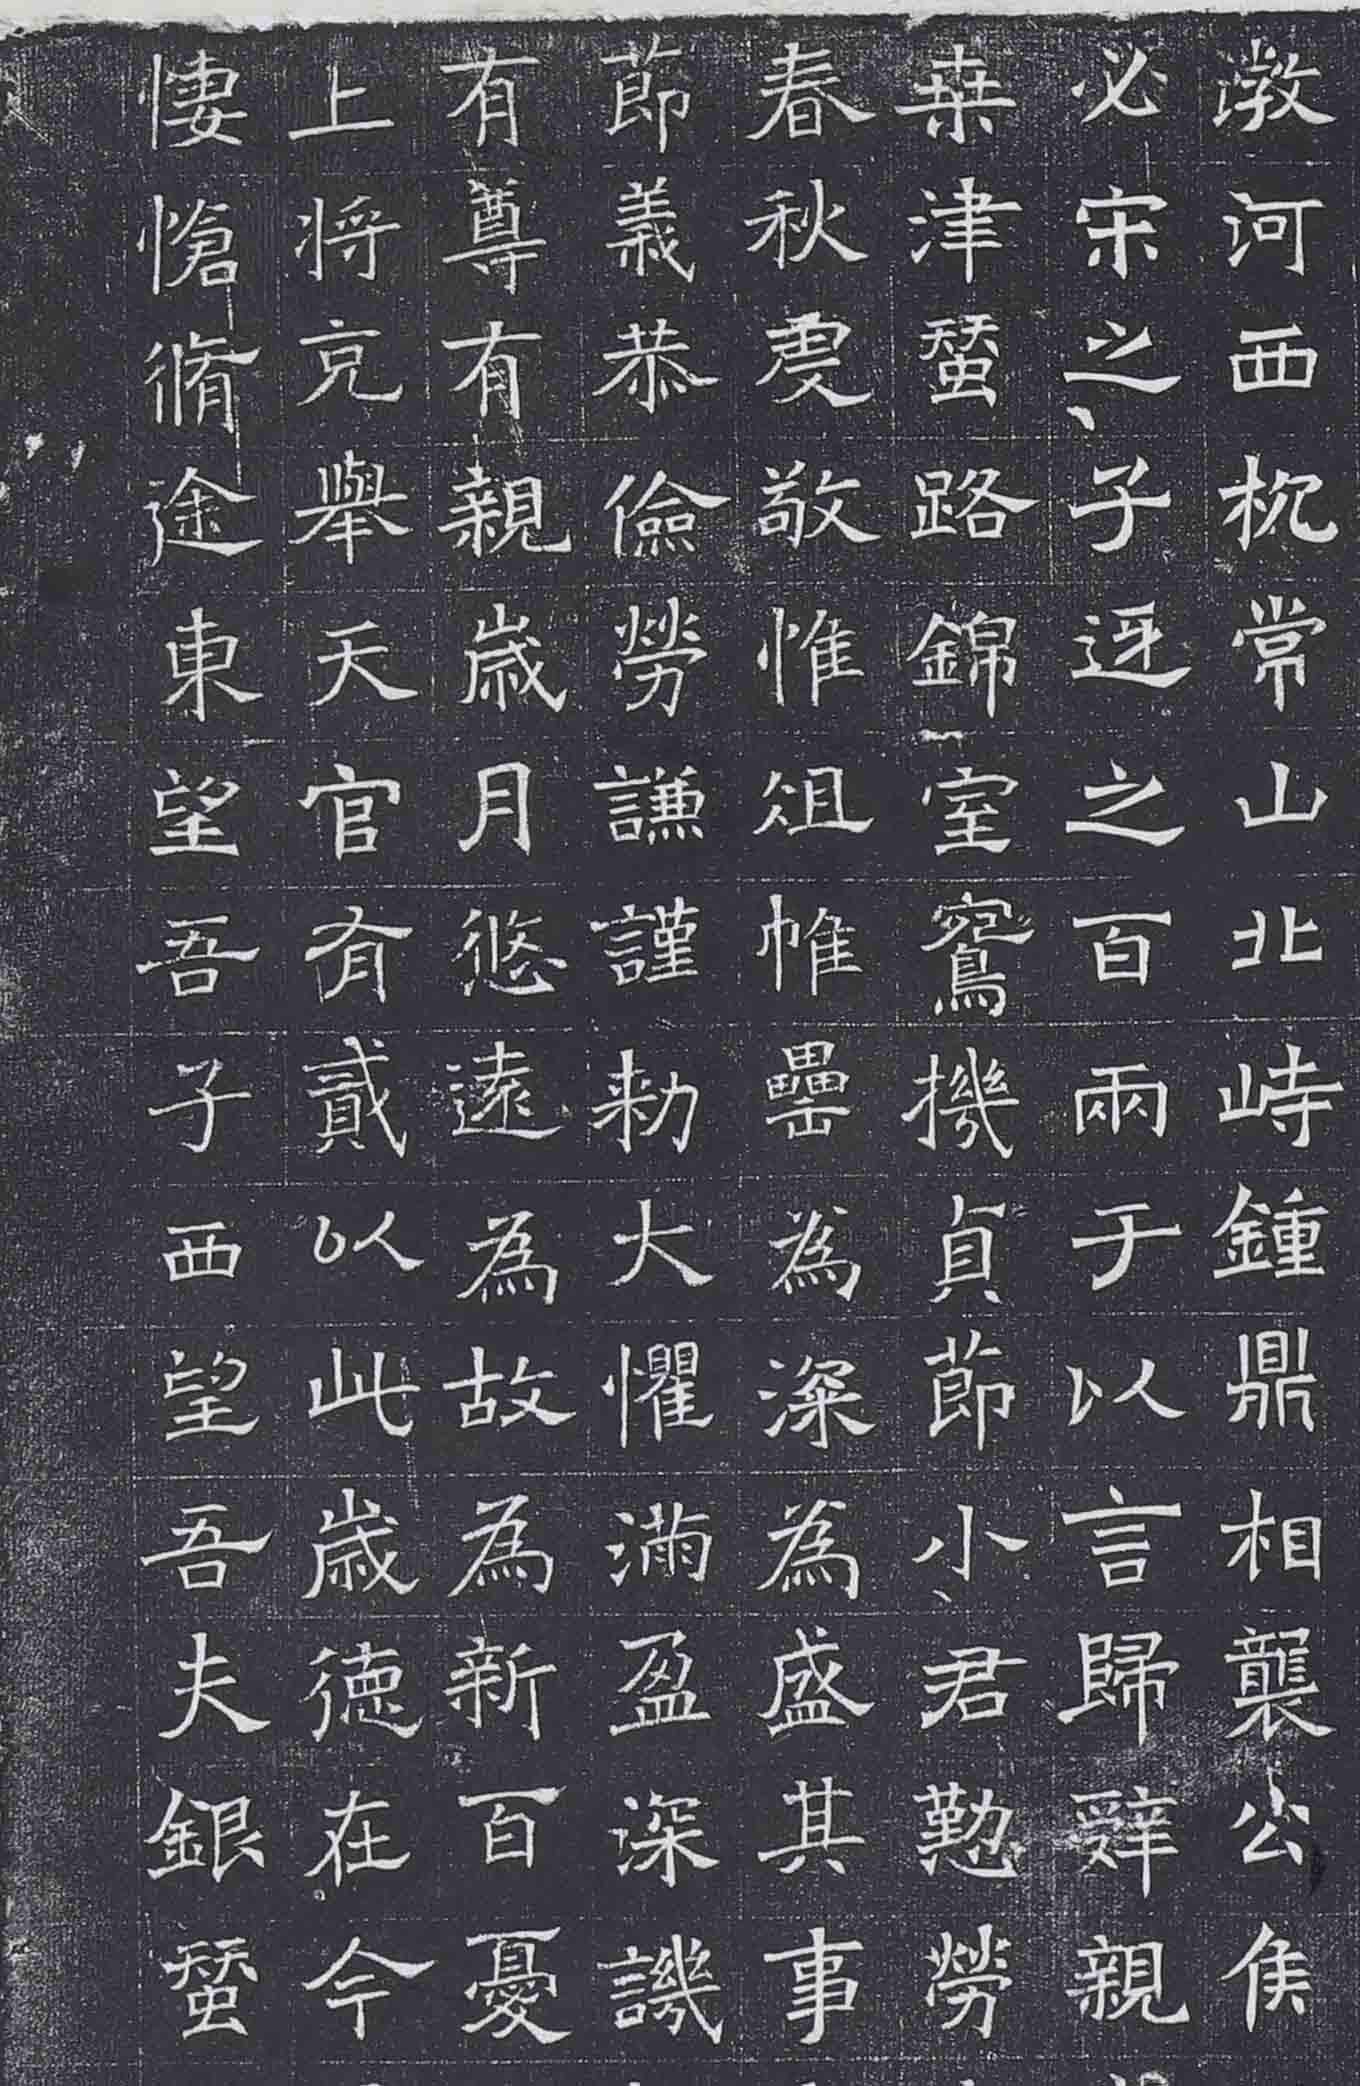 潡河西杌常山北峙鍾鼎相襲公侯
必宋之子迓之百兩于以言歸辭親
桒津蝅路錦室鴛機貞節小君懃勞
春秋虔敬惟俎帷罍為深為盛其事
節義恭儉勞謙謹勑大懼滿盈深譏
有尊有親歲月悠遠為故為新百憂
上將克舉天官有貳以此歲德在今
悽愴脩途東望吾子西望吾夫銀蝅